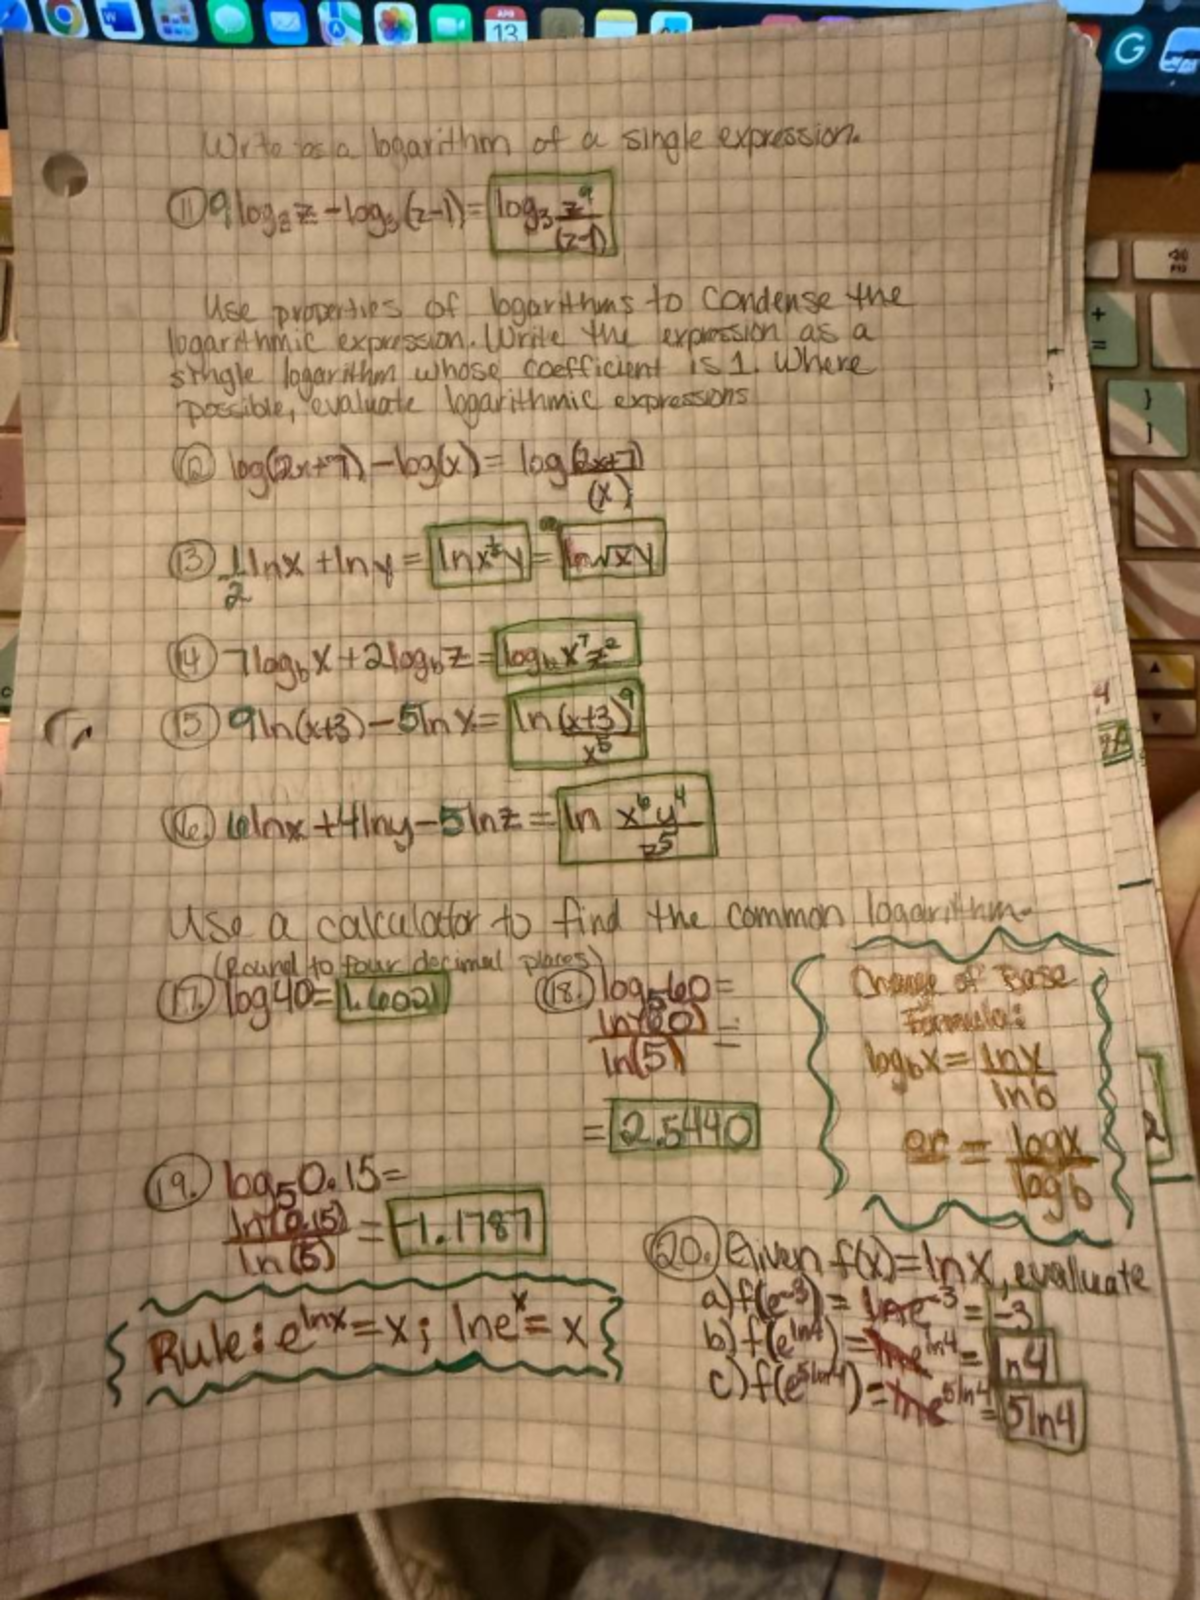 W
APR
13
G
Write as a logarithm of a single expression.
⑪ 9log₃z - log₃(z-1) = log₃ z⁹/(z-1)
Use properties of logarithms to condense the
logarithmic expression. Write the expression as a
single logarithm whose coefficient is 1. Where
possible, evaluate logarithmic expressions
⑫ log(2x+7) - log(x) = log (2x+7)/(x)
⑬ 1/2 lnx + lny = lnx^½y = ln√xy
⑭ 7log_b x + 2log_b z = log_b x⁷z²
⑮ 9ln(x+3) - 5lnx = ln (x+3)⁹/x⁵
⑯. 6lnx + 4lny - 5lnz = ln x⁶y⁴/z⁵
Use a calculator to find the common logarithm.
(Round to four decimal places)
17. log40 = 1.6021
18. log₅60 =
ln(60)/ln(5) =
= 2.5440
Change of Base
Formula:
log_b x = lnx/lnb
or = logx/logb
19. log₅0.15 =
ln(0.15)/ln(5) = -1.1787
Rule: e^lnx = x; lne^x = x
20. Given f(x) = lnx, evaluate
a) f(e⁻³) = lne⁻³ = -3
b) f(e^ln4) = lne^ln4 = ln4
c) f(e^5ln4) = lne^5ln4 = 5ln4
+
=
}
]
4
2